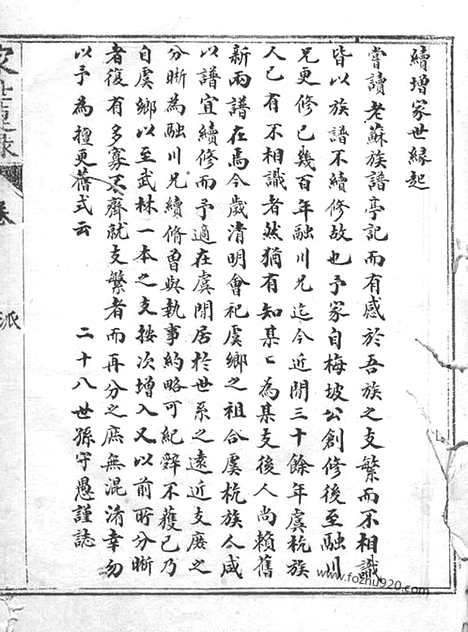 續增家世緣起
嘗讀老蘇族譜亭記而有感於吾族之支繁而不相識
皆以族譜不續修故也予家自梅坡公創修後至融川
兄更修已幾百年融川兄迄今近閱三十餘年虞杭族
人已有不相識者然猶有知某〻為某支後人尚賴舊
新兩譜在焉今歲清明會祀虞鄉之祖合虞杭族人咸
以譜宜續修而予適在虞閒居於世系之遠近支庶之
分晰為融川兄續脩曾與執事約略可紀辭不獲已乃
自虞鄉以至武林一本之支按次增入又以前所分晰
者復有多寡不齊就支繁者而再分之庶無混淆幸勿
以予為擅更舊式云
二十八世孫守愚謹誌
家世
錄
卷
派
www.fozhu920.com